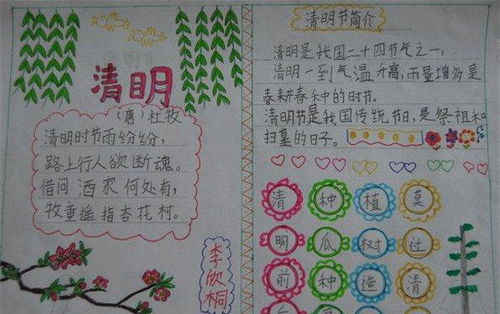 清明
(唐)杜牧
清明时节雨纷纷,
路上行人欲断魂。
借问酒家何处有,
牧童遥指杏花村。
李欣桐
清明节简介
清明是我国二十四节气之一,
清明一到气温升高,雨量增多是
春耕春种的时节。
清明节是我国传统节日,是祭祖和
扫墓的日子。
清 种 植 莫
明 瓜 树 过
前 种 造 清